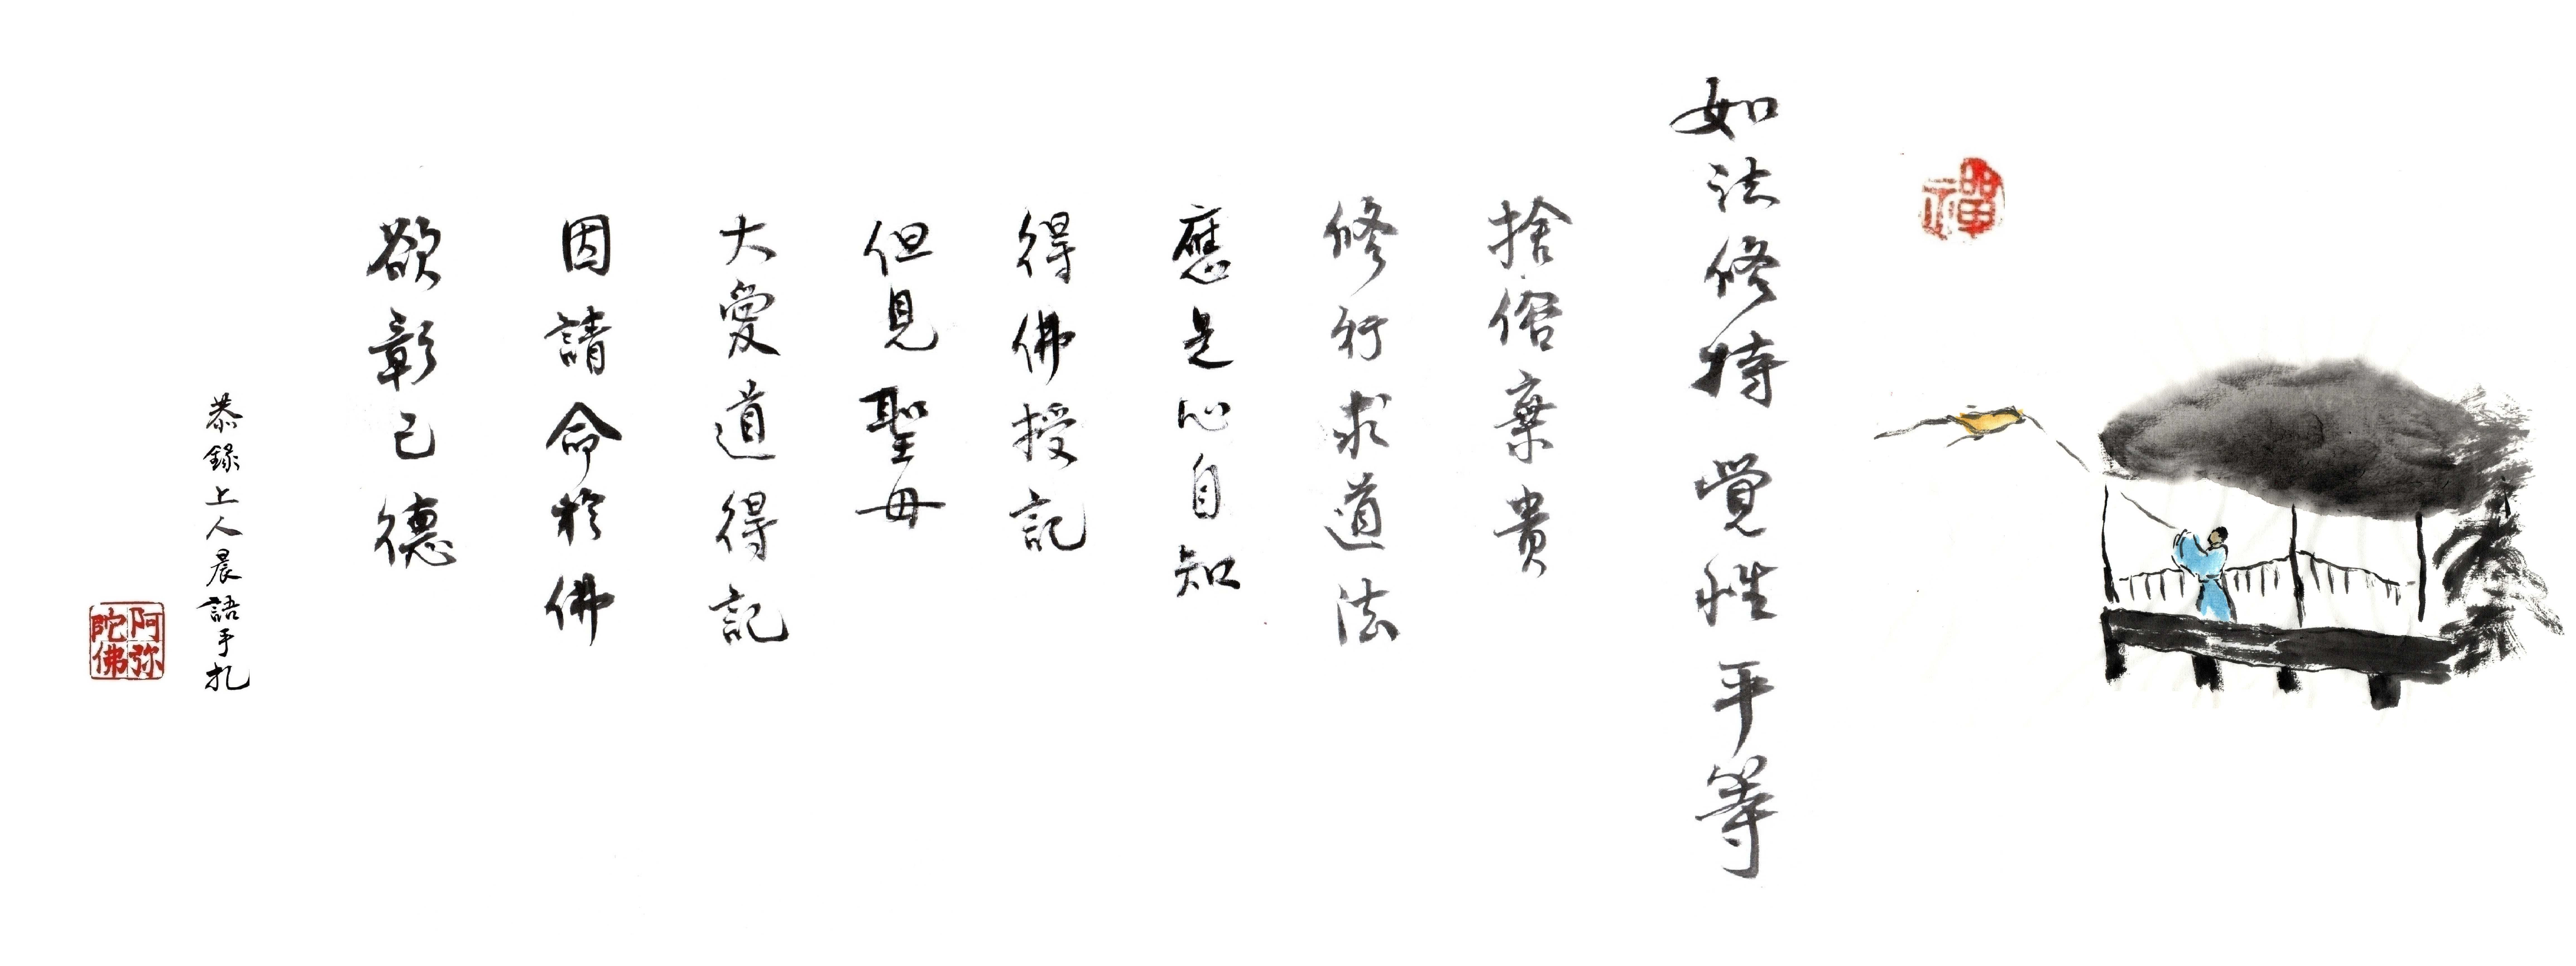 禪
如法修持覺性平等
捨俗棄貴
修行求道法
應是心自知
得佛授記
但見聖母
大愛道得記
因請命於佛
欲彰己德
恭錄上人晨語手札
阿弥
陀佛